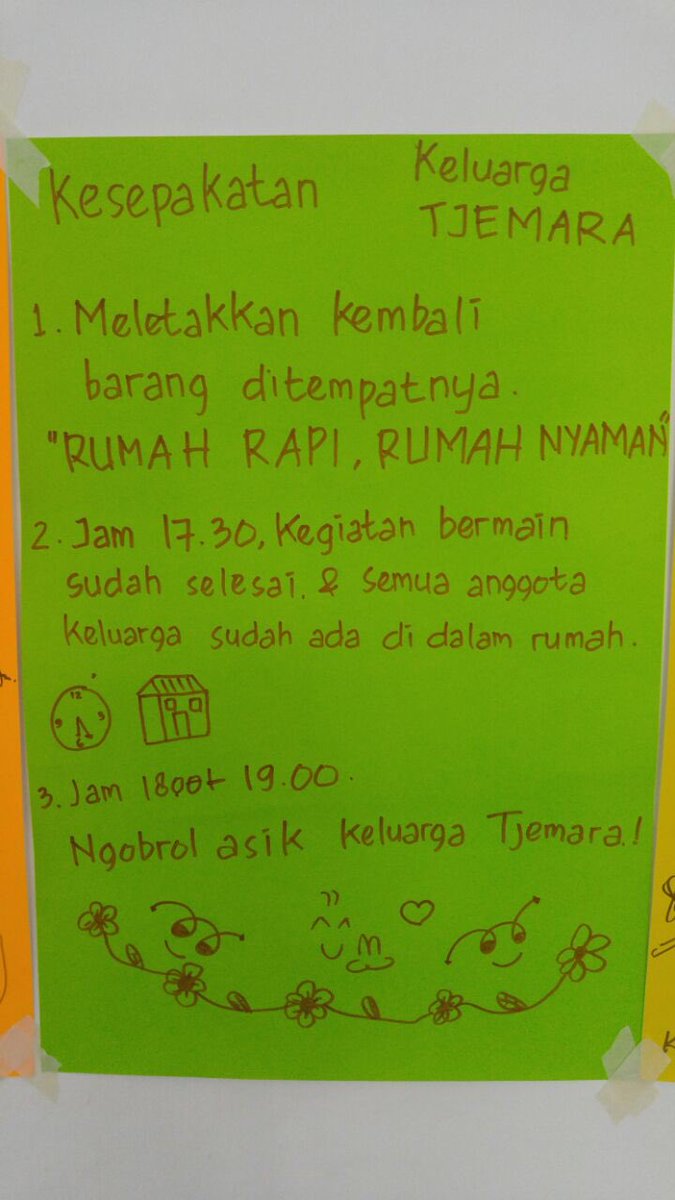 Kesepakatan
Keluarga
TJEMARA
1. Meletakkan kembali
barang ditempatnya.
"RUMAH RAPI, RUMAH NYAMAN"
2. Jam 17.30, Kegiatan bermain
sudah selesai. & semua anggota
keluarga sudah ada di dalam rumah.
12
9 3
6
3. Jam 19.00.
Ngobrol asik keluarga Tjemara.!